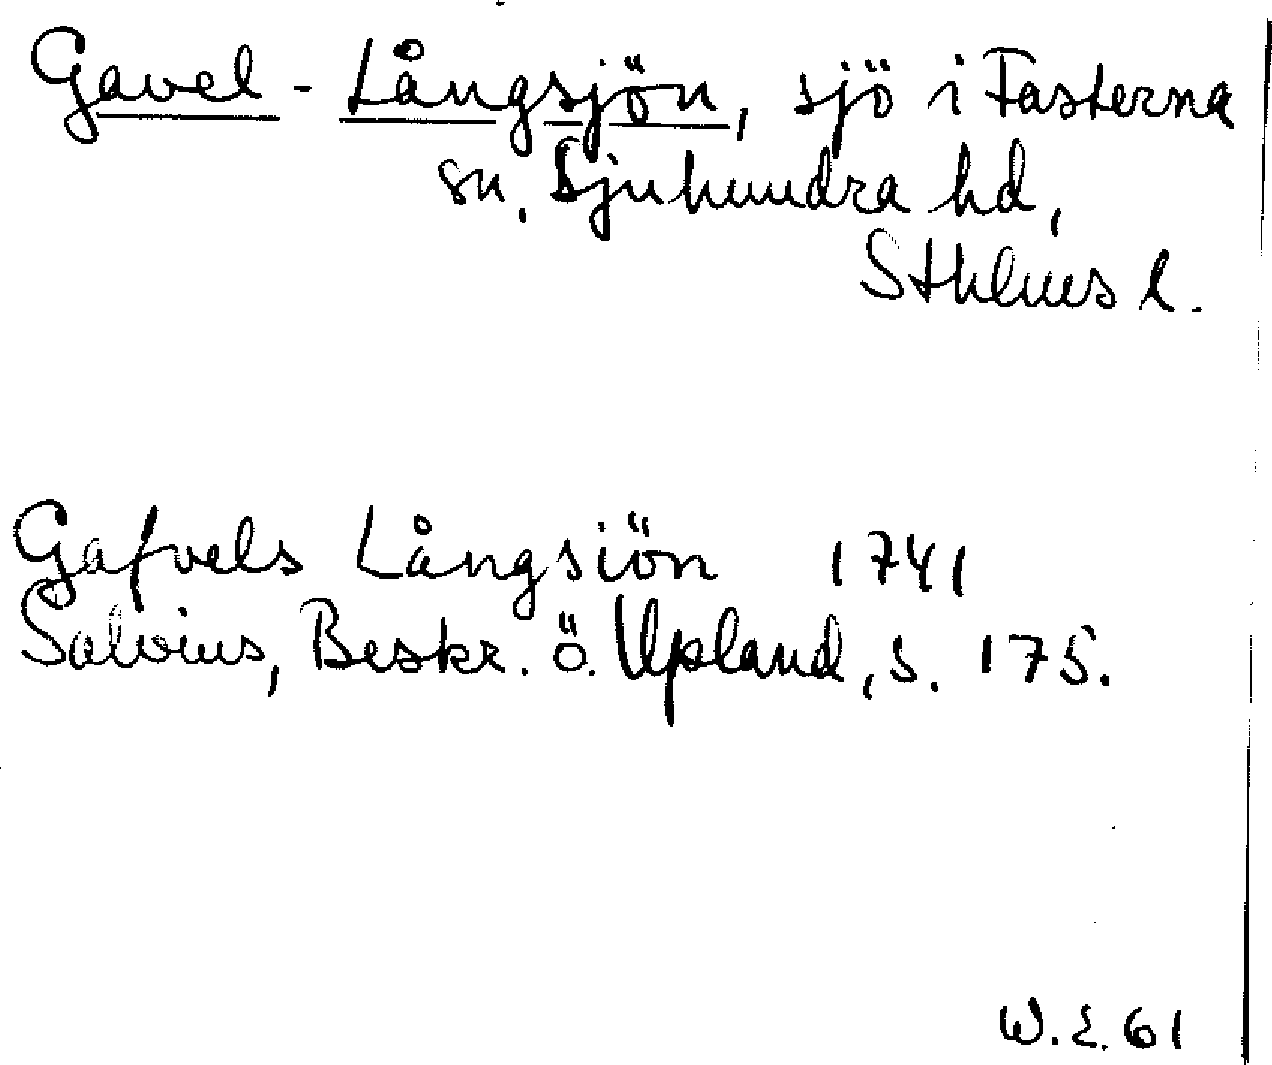 Gavel-Långsjön, sjö i Fasterna
sn, Sjuhundra hd,
Sthlms l.
Gafvels Långsiön 1741
Salvius, Beskr. ö. Upland, s. 175.
W.E. 61